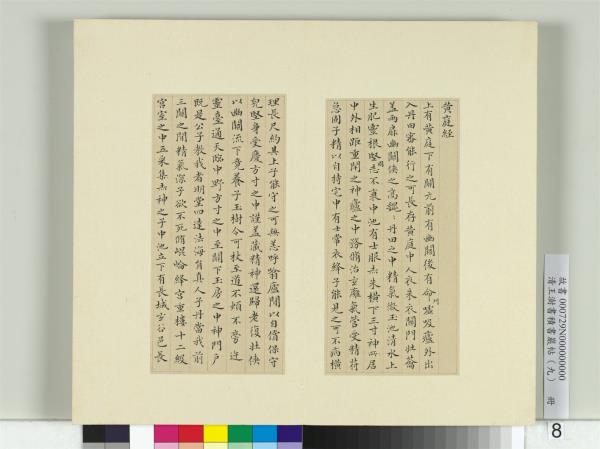 黃庭經
上有黃庭下有關元前有幽關後有命噓吸廬外出
入丹田審能行之可長存黃庭中人衣朱衣關門壯籥
蓋兩扉幽關俠之高魏魏丹田之中精氣微玉池清水上
生肥靈根堅志不衰中池有士服赤朱橫下三寸神所居
中外相距重閉之神廬之中務脩治玄廱氣管受精符
急固子精以自持宅中有士常衣絳子能見之可不病橫
理長尺約其上子能守之可無恙呼翕廬間以自償保守
完堅身受慶方寸之中謹蓋藏精神還歸老復壯俠
以幽關流下竟養子玉樹令可杖至道不煩不旁迕
靈臺通天臨中野方寸之中至關下玉房之中神門戶
既是公子教我者明堂四達法海員真人子丹當我前
三關之間精氣深子欲不死脩崐崘絳宮重樓十二級
宮室之中五采集赤神之子中池立下有長城玄谷邑長
故書 000729N000000000
清王澍書積書巖帖（九） 冊
8